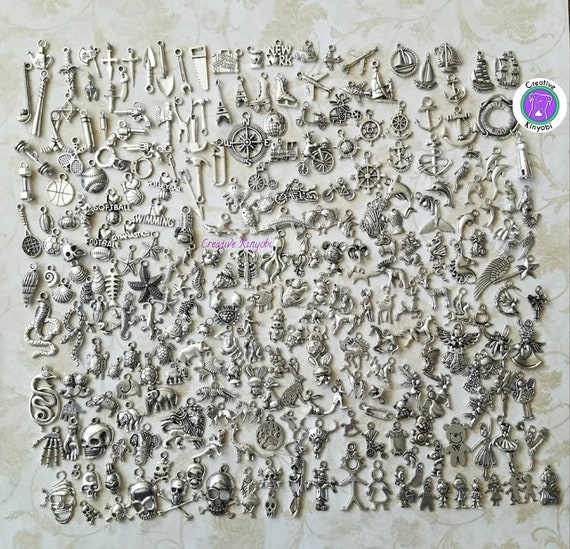 NEW
YORK
Creative
Kinyobi
SOFTBALL
SWIMMING
GYMNASTICS
FOOTBALL
Creative Kinyobi